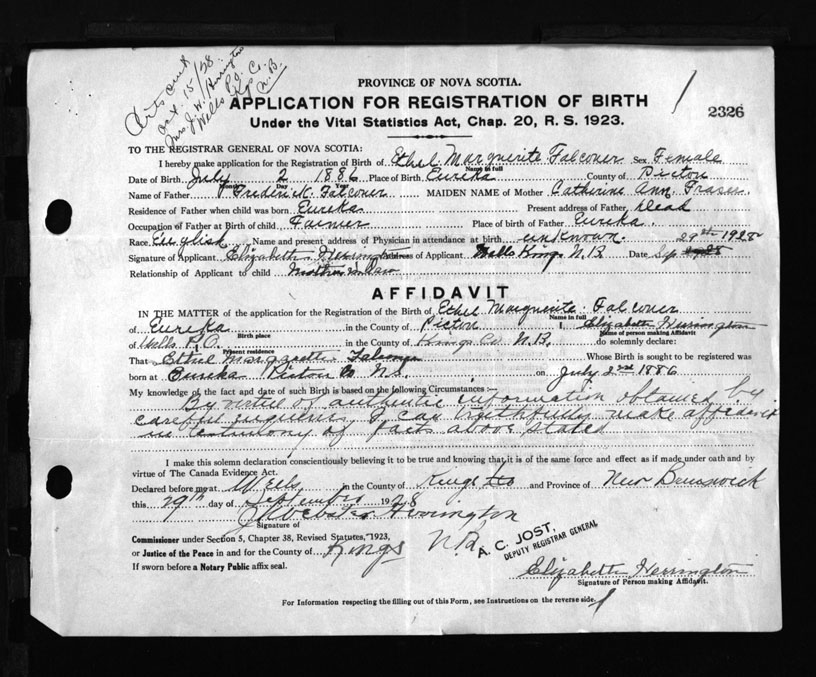 Oct 15/28
Wells P.O.
N.B.
PROVINCE OF NOVA SCOTIA.
APPLICATION FOR REGISTRATION OF BIRTH
2326
Under the Vital Statistics Act, Chap. 20, R. S. 1923.
TO THE REGISTRAR GENERAL OF NOVA SCOTIA:
I hereby make application for the Registration of Birth of Ethel Marguerite Falconer Sex Female
Name in full
Date of Birth July 2 1886 Place of Birth Eureka County of Pictou
Month Day Year
Name of Father Frederick Falconer MAIDEN NAME of Mother Catherine Ann Fraser
Residence of Father when child was born Eureka Present address of Father Dead
Occupation of Father at Birth of child Farmer Place of birth of Father Eureka.
Race English Name and present address of Physician in attendance at birth unknown. 29th 1928
Signature of Applicant Elizabeth Herrington Address of Applicant Wells Kings N.B. Date Sep
Relationship of Applicant to child
AFFIDAVIT
IN THE MATTER of the application for the Registration of the Birth of Ethel Marguerite Falconer
Name in full
of Eureka in the County of Pictou I Elizabeth Herrington
Birth place Name of person making Affidavit
of Wells P.O. in the County of Kings Co N.B. do solemnly declare:
Present residence
That Ethel Falconer Whose Birth is sought to be registered was
born at Eureka Pictou Co N.S. on July 2nd 1886
My knowledge of the fact and date of such Birth is based on the following Circumstances:
By virtue of authentic information obtained by
careful enquiries I can truthfully make affidavit
in testimony of facts above stated
I make this solemn declaration conscientiously believing it to be true and knowing that it is of the same force and effect as if made under oath and by
virtue of The Canada Evidence Act.
Declared before me at Wells in the County of Kings Co and Province of New Brunswick
this 29th day of September 1928
J Webster Herrington
Signature of
Commissioner under Section 5, Chapter 38, Revised Statutes, 1923,
or Justice of the Peace in and for the County of Kings N.B.
If sworn before a Notary Public affix seal.
A. C. JOST,
DEPUTY REGISTRAR GENERAL
Elizabeth Herrington
Signature of Person making Affidavit.
For Information respecting the filling out of this Form, see Instructions on the reverse side.